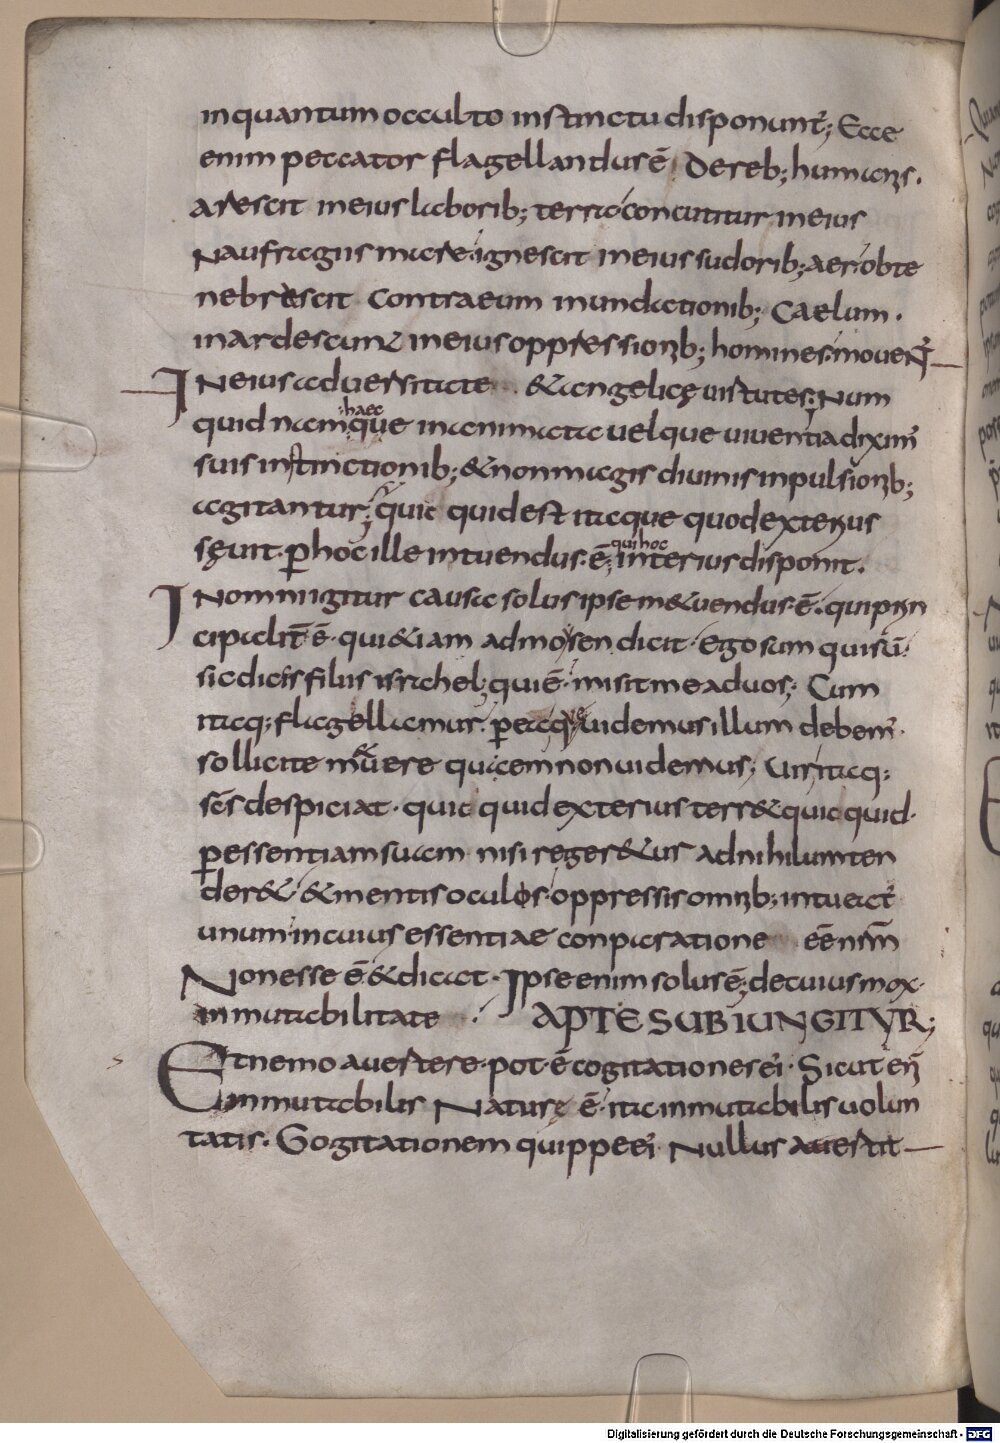 inquantum occulto instinctu disponunt̃; Ecce
enim peccator flagellandus ē Dereb; humanis.
arescit ineius laborib; terra concutitur ineius
Naufragiis mare ignescit ineius sudorib; aer obte
nebrescit contraeum inundationib; Caelum.
inardescunt ineius oppressionib; homines mouent̃
Ineius aduersitate &angelicę uirtutes; Num
quid nam haec que inanimata uel que uiuentia dixim̃
suis instinctionib; &non magis diuinis inpulsionib;
agitantur; quic quid est itaque quod exterius
sęuit. p̱ hoc ille intuendus. ē; qui hoc interius disponit.
In omni igitur causa solus ipse in&uendus. ē. qui prin
cipalit̃ ē. qui&iam admoysen dicit. Ego sum qui sū.
sic dicis filiis israhel; qui ē. misit me ad uos; Cum
itaq; flagellamur. p̱ ea que uidemus illum debem̃.
sollicite m&uere quem non uidemus; Uir itaq;
sc̄s despiciat. quic quid exterius terr& quic quid.
p̱ essentiam suam nisi reger&ur ad nihilum ten
der& &mentis oculos. oppressis omnib; intueat̃
unum. in cuius essentiae conparatione eē nr̄m
Non esse ē. &dicat. Ipse enim solus ē; de cuius mox
inmutabilitate . APTE SUBIUNGITUR;
Et nemo auertere. pot. ē cogitationes ei. Sicut eñ
inmutabilis Naturę ē. ita inmutabilis uolun
tatis. Gogitationem quippe ei. Nullus auertit
Digitalisierung gefördert durch die Deutsche Forschungsgemeinschaft - DFG